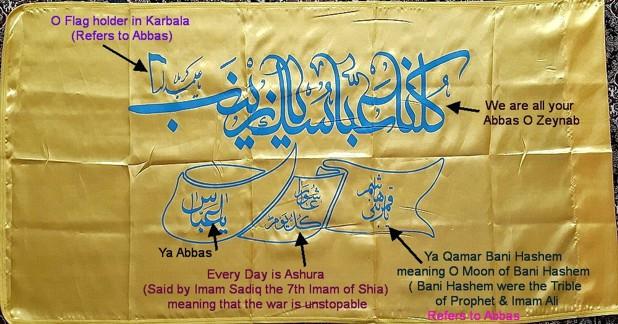 O Flag holder in Karbala
(Refers to Abbas)
كُلنا عبّاسك يا زينب
We are all your
Abbas O Zeynab
يا عباس
كل يوم عاشورا
يا قمر بني هاشم
Ya Abbas
Every Day is Ashura
(Said by Imam Sadiq the 7th Imam of Shia)
meaning that the war is unstopable
Ya Qamar Bani Hashem
meaning O Moon of Bani Hashem
( Bani Hashem were the Trible
of Prophet & Imam Ali
Refers to Abbas